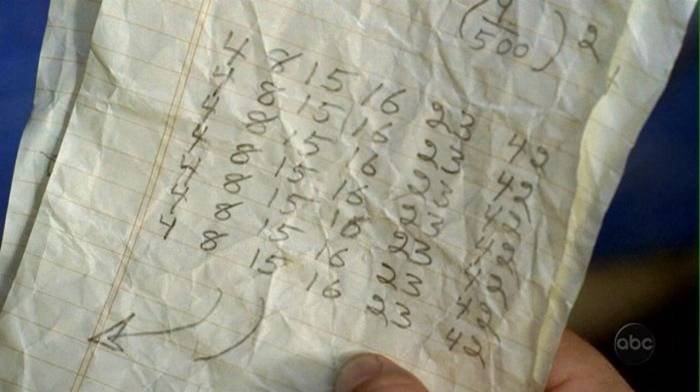 (9/500) 2
4 8 15 16 23 42
4 8 15 16 23 42
4 8 15 16 23 42
4 8 15 16 23 42
4 8 15 16 23 42
4 8 15 16 23 42
4 8 15 16 23 42
abc